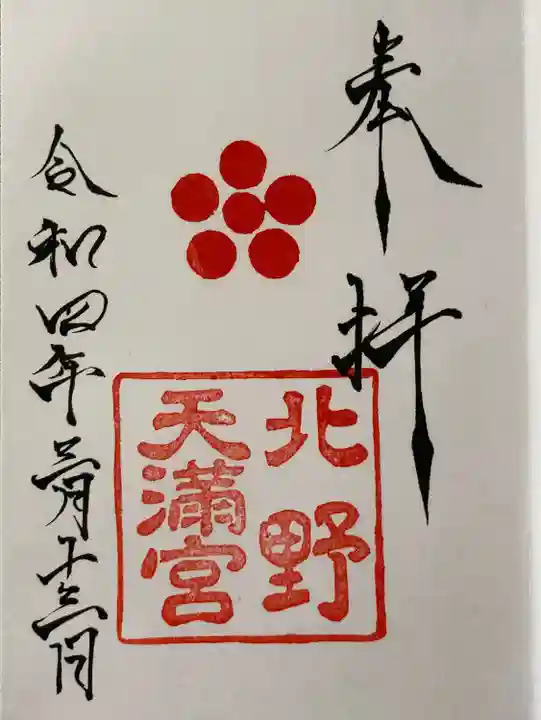 奉拝
北野
天満宮
令和四年三月十三日